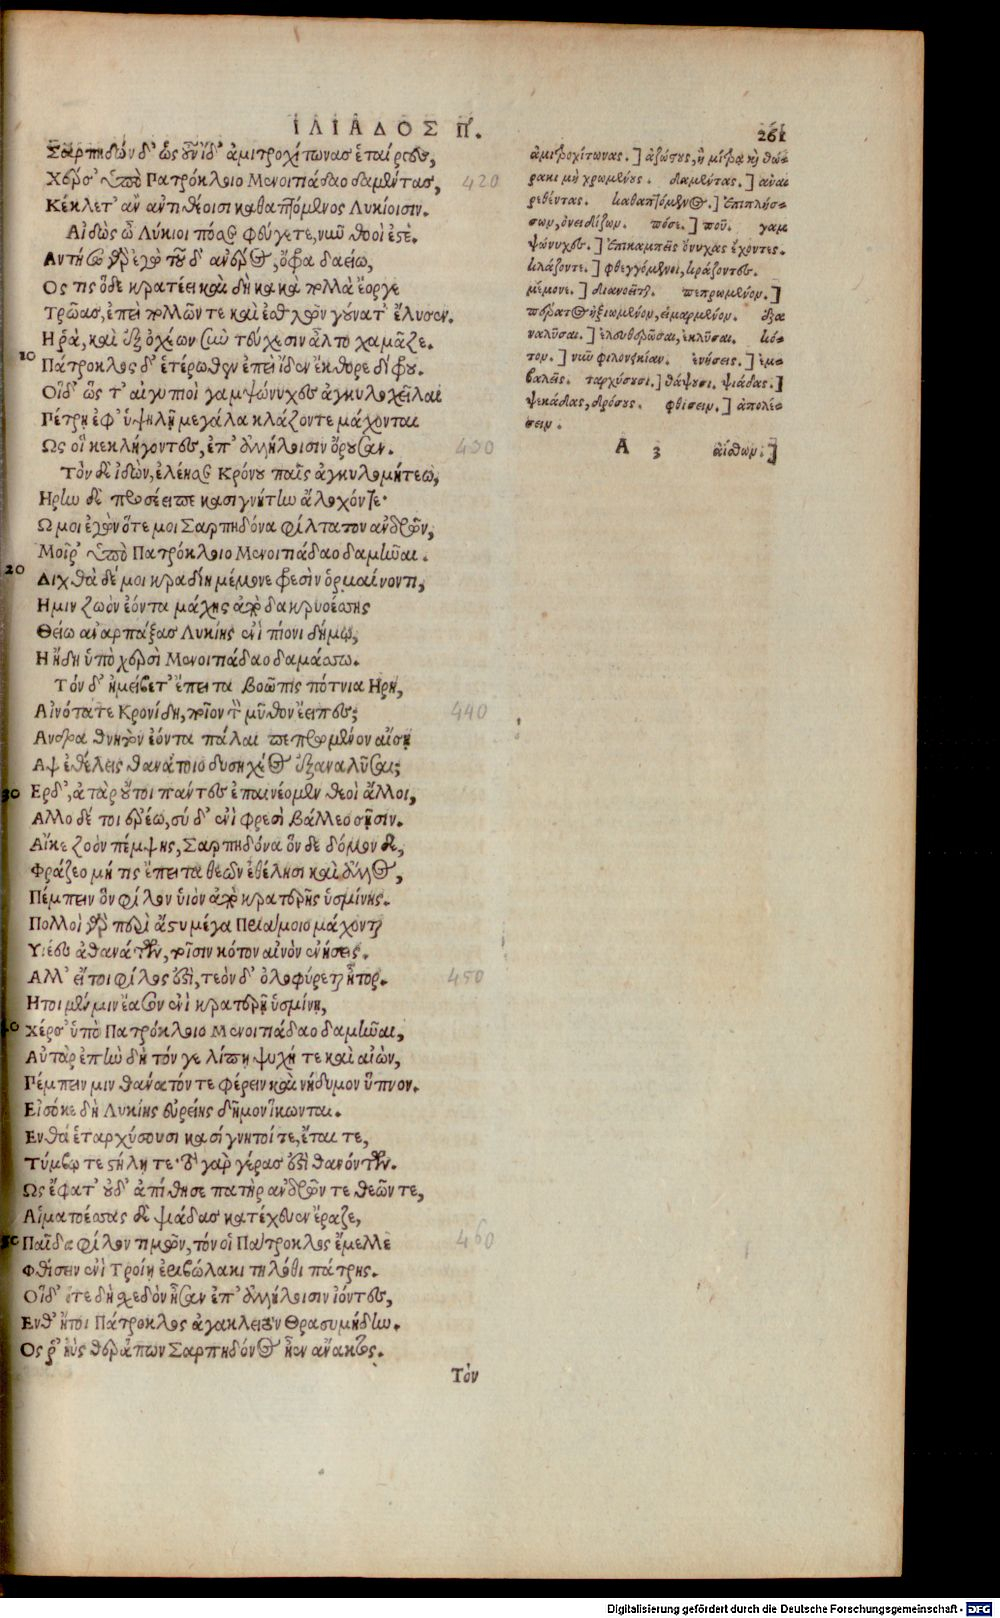 ΙΛΙΑΔΟΣ Π. 261
Σαρπηδὼν δ' ὡς οὖν ἴδ' ἀμιτροχίτωνας ἑταίρους,
Χέρσ' ὑπὸ Πατρόκλοιο Μενοιτιάδαο δαμέντας, 420
Κέκλετ' ἂν ἀντιθέοισι καθαπτόμενος Λυκίοισιν.
Αἰδὼς ὦ Λύκιοι πόσε φεύγετε, νῦν θοοὶ ἐστέ.
Αντήσω γὰρ ἐγὼ τοῦδ' ἀνέρος, ὄφρα δαείω,
Ος τις ὅδε κρατέει καὶ δὴ κακὰ πολλὰ ἔοργε
Τρῶας, ἐπεὶ πολλῶν τε καὶ ἐσθλῶν γούνατ' ἔλυσεν.
Η ῥά, καὶ ἐξ ὀχέων σὺν τεύχεσιν ἆλτο χαμᾶζε.
10 Πάτροκλος δ' ἑτέρωθεν ἐπεὶ ἴδεν ἔκθορε δίφρου.
Οἱ δ' ὥς τ' αἰγυπιοὶ γαμψώνυχες ἀγκυλοχεῖλαι
Πέτρῃ ἐφ' ὑψηλῇ μεγάλα κλάζοντε μάχονται
Ως οἱ κεκλήγοντες, ἐπ' ἀλλήλοισιν ὄρουσαν. 430
Τὸν δὲ ἰδὼν, ἐλέησε Κρόνου παῖς ἀγκυλομήτεω,
Ηρην δὲ προσέειπε κασιγνήτην ἄλοχόν τε·
Ω μοι ἐγὼν ὅτε μοι Σαρπηδόνα φίλτατον ἀνδρῶν,
Μοῖρ' ὑπὸ Πατρόκλοιο Μενοιτιάδαο δαμῆναι.
20 Διχθὰ δέ μοι κραδίη μέμονε φρεσὶν ὁρμαίνοντι,
Η μιν ζωὸν ἐόντα μάχης ἀπὸ δακρυοέσσης
Θείω ἀναρπάξας Λυκίης ἐνὶ πίονι δήμῳ,
Η ἤδη ὑπὸ χερσὶ Μενοιτιάδαο δαμάσσω.
Τόν δ' ἠμείβετ' ἔπειτα βοῶπις πότνια Ηρη,
Αἰνότατε Κρονίδη, ποῖον τὸν μῦθον ἔειπες; 440
Ανδρα θνητὸν ἐόντα πάλαι πεπρωμένον αἴσῃ
Αψ ἐθέλεις θανάτοιο δυσηχέος ἐξαναλῦσαι;
30 Ερδ', ἀτὰρ οὔτοι πάντες ἐπαινέομεν θεοὶ ἄλλοι,
Αλλο δέ τοι ἐρέω, σύ δ' ἐνὶ φρεσὶ βάλλεο σῇσιν.
Αἴκε ζοὸν πέμψῃς, Σαρπηδόνα ὅν δε δόμον δε,
Φράζεο μή τις ἔπειτα θεῶν ἐθέλῃσι καὶ ἄλλος,
Πέμπειν ὃν φίλον υἱὸν ἀπὸ κρατερῆς ὑσμίνης.
Πολλοὶ γὰρ περὶ ἄστυ μέγα Πριάμοιο μάχονται
Υἱέες ἀθανάτων, τοῖσιν κότον αἰνὸν ἐνήσεις.
Αλλ' εἴ τοι φίλος ἐστὶ, τεὸν δ' ὀλοφύρεται ἦτορ. 450
Ητοι μέν μιν ἔασον ἐνὶ κρατερῇ ὑσμίνῃ,
40 Χέρσ' ὑπὸ Πατρόκλοιο Μενοιτιάδαο δαμῆναι,
Αὐτὰρ ἐπὴν δὴ τόν γε λίπῃ ψυχή τε καὶ αἰών,
Πέμπειν μιν θάνατόν τε φέρειν καὶ νήδυμον ὕπνον.
Εἰσόκε δὴ Λυκίης εὐρείης δῆμον ἵκωνται.
Ενθά ἑ ταρχύσουσι κασίγνητοί τε, ἔται τε,
Τύμβῳ τε στήλῃ τε· τὸ γὰρ γέρας ἐστὶ θανόντων.
Ως ἔφατ' οὐδ' ἀπίθησε πατὴρ ἀνδρῶν τε θεῶν τε,
Αἱματοέσσας δὲ ψιάδας κατέχευεν ἔραζε,
50 Παῖδα φίλον τιμῶν, τόν οἱ Πάτροκλος ἔμελλε 460
Φθίσειν ἐνὶ Τροίῃ ἐριβώλακι τηλόθι πάτρης.
Οἱ δ' ὅτε δὴ σχεδὸν ἦσαν ἐπ' ἀλλήλοισιν ἰόντες,
Ενθ' ἤτοι Πάτροκλος ἀγακλειτὸν Θρασυμήδην.
Ος ῥ' ἠῢς θεράπων Σαρπηδόνος ἦεν ἄνακτος.
Τὸν
ἀμιτροχίτωνας.] ἀζώστους, ἢ μίτρᾳ καὶ θώ-
ρακι μὴ χρωμένους. δαμέντας.] ἀναι
ρεθέντας. καθαπτόμενος.] ἐπιπλήσ-
σων, ὀνειδίζων. πόσε.] ποῦ. γαμ
ψώνυχες.] ἐπικαμπεῖς ὄνυχας ἔχοντες.
κλάζοντε.] φθεγγόμενοι, κράζοντες.
μέμονε.] διανοεῖται. πεπρωμένον.]
πέρατος ἠξιωμένον, εἱμαρμένον. ἐξα
ναλῦσαι.] ἐλευθερῶσαι, ἐκλῦσαι. κό-
τον.] νῦν φιλονεικίαν. ἐνήσεις.] ἐμ-
βαλεῖς. ταρχύσουσι.] θάψουσι. ψιάδας.]
ψεκάδας, δρόσους. φθίσειν.] ἀπολέ-
σειν.
Α 3 αἴθων.]
Digitalisierung gefördert durch die Deutsche Forschungsgemeinschaft - DFG